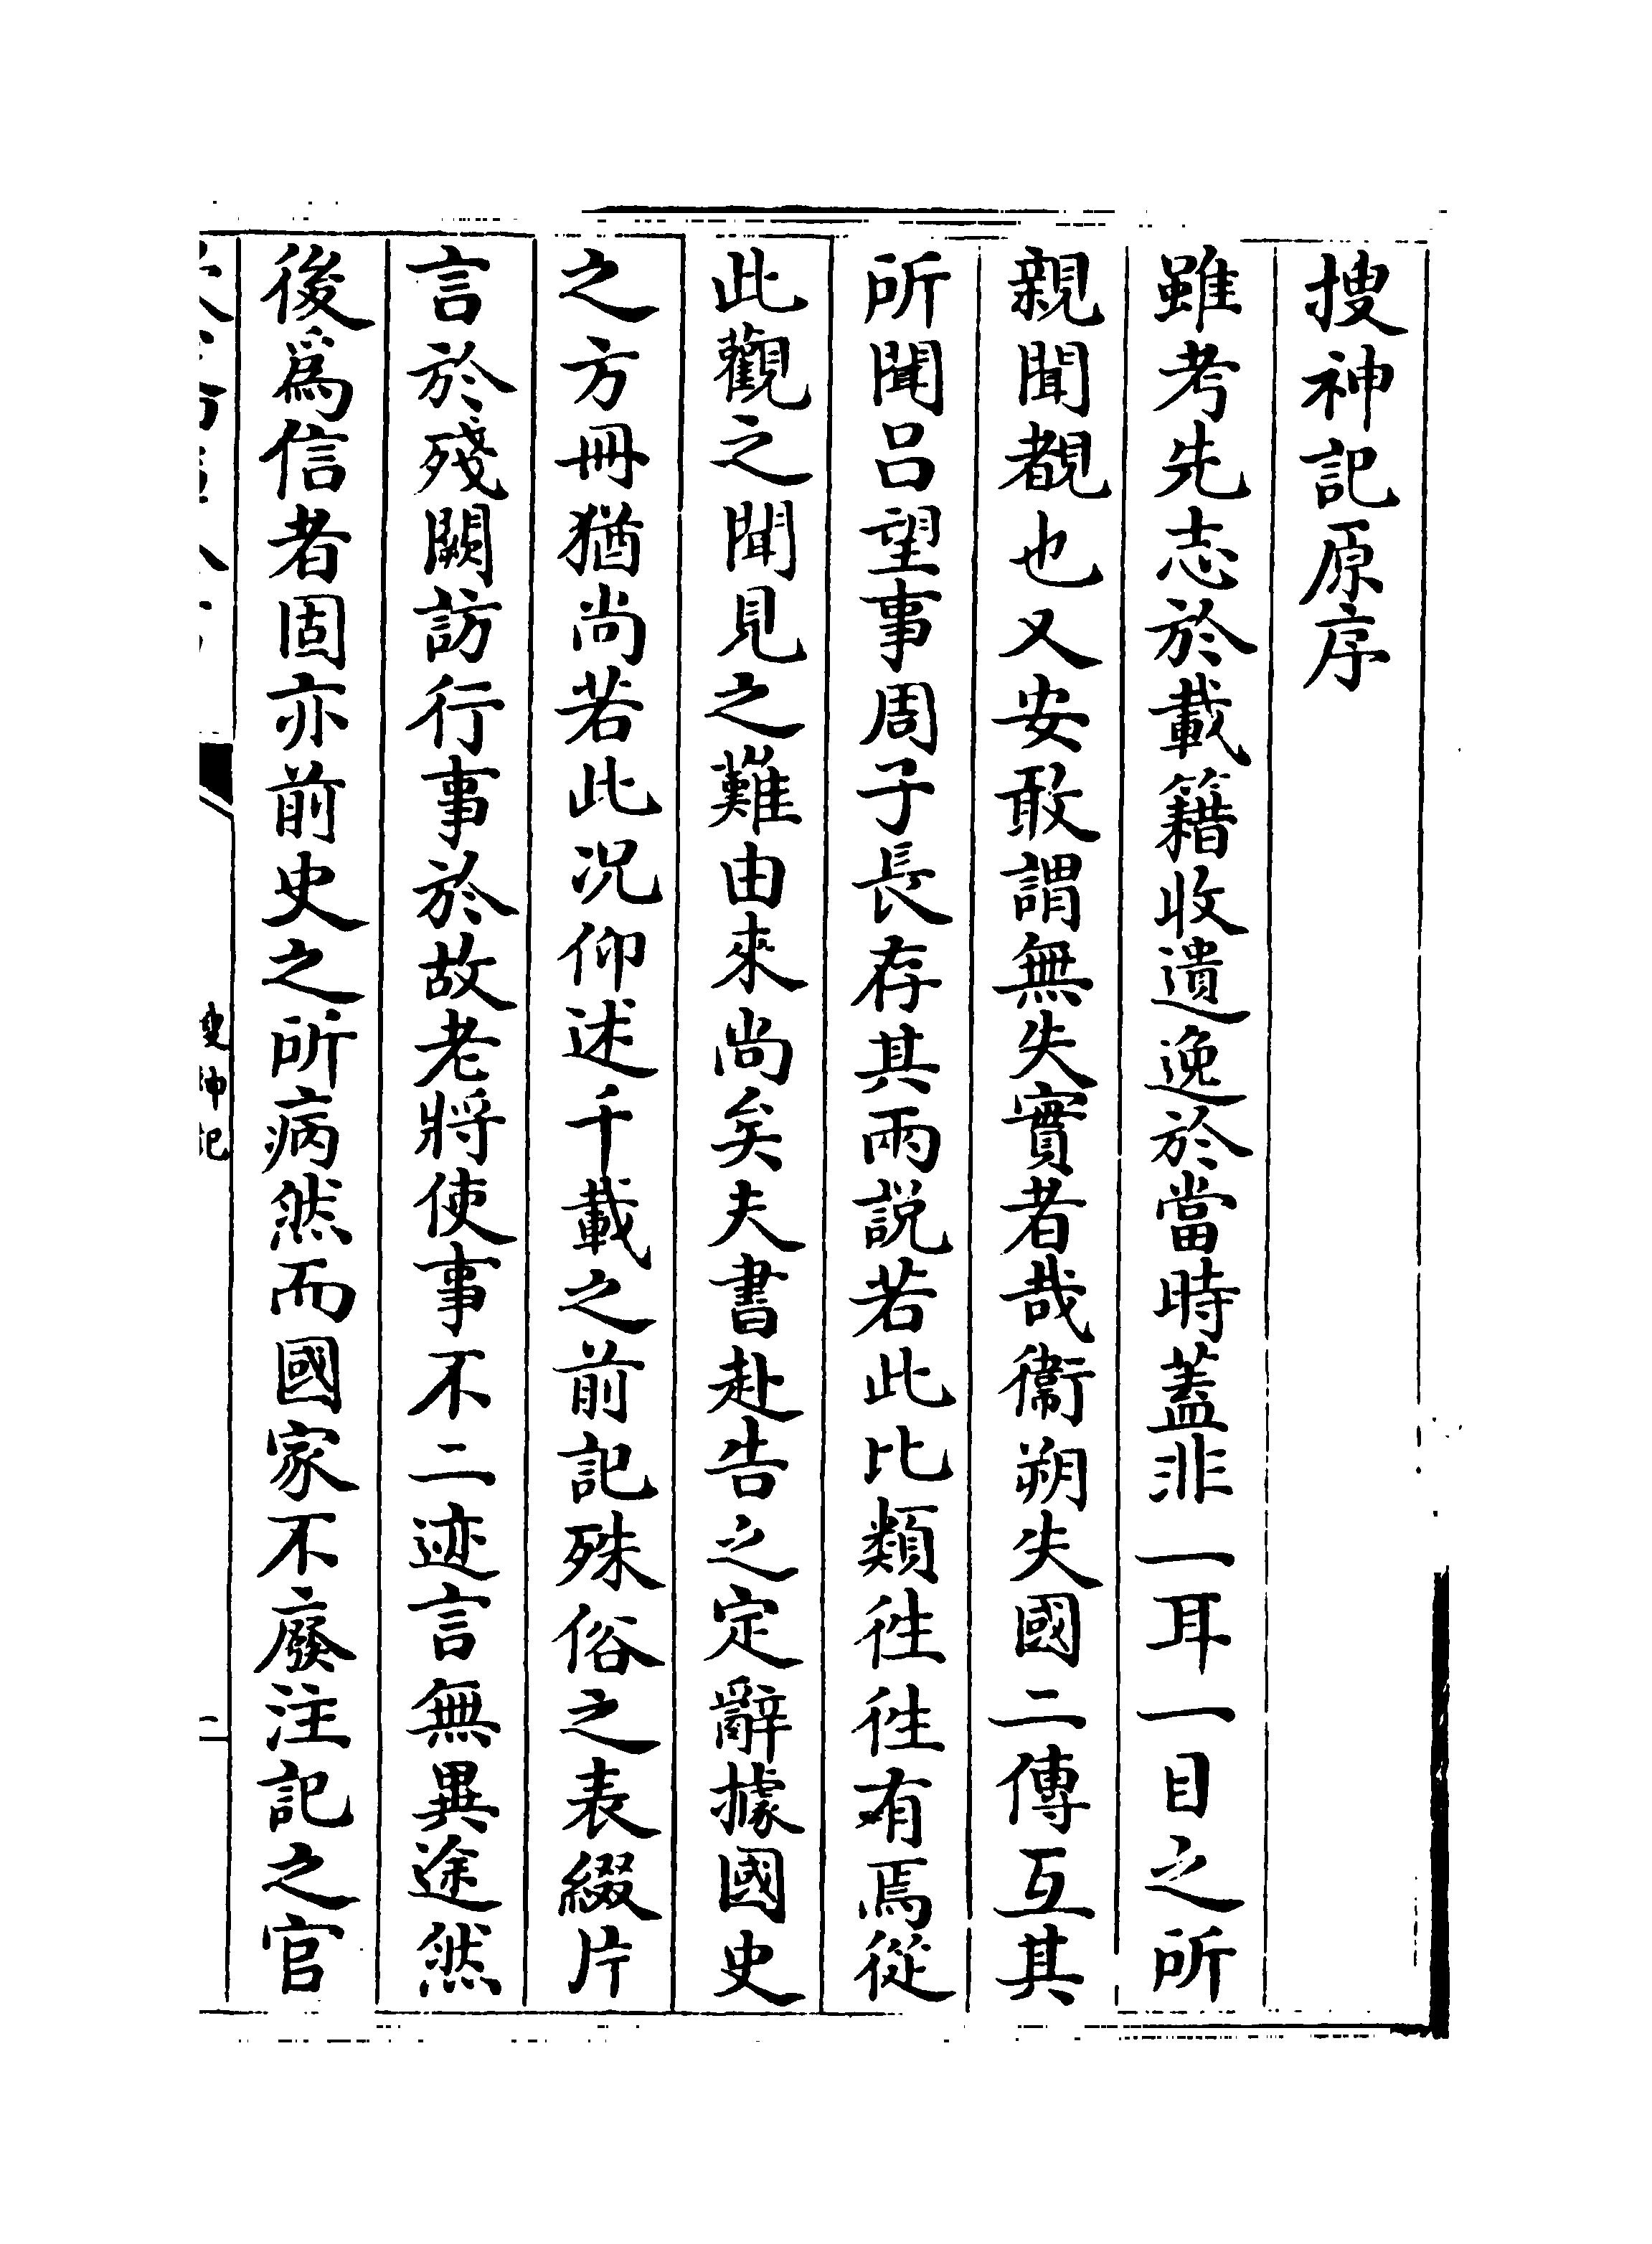 搜神記原序
雖考先志於載籍收遺逸於當時蓋非一耳一目之所
親聞覩也又安敢謂無失實者哉衞朔失國二傳互其
所聞吕望事周子長存其兩説若此比類徃徃有焉從
此觀之聞見之難由來尚矣夫書赴告之定辭據國史
之方冊猶尚若此况仰述千載之前記殊俗之表綴片
言於殘闕訪行事於故老將使事不二迹言無異途然
後爲信者固亦前史之所病然而國家不廢注記之官
搜神記